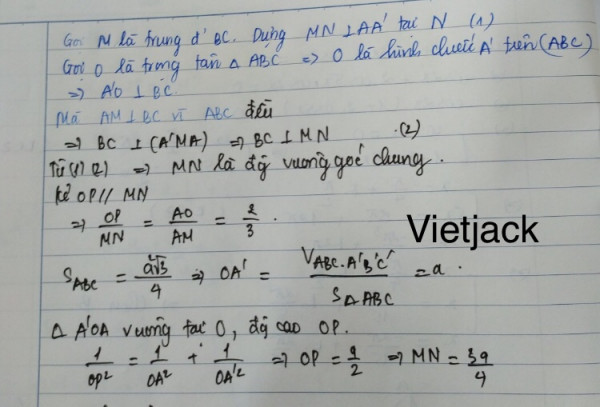 Gọi M là trung đ' BC. Dựng MN ⊥ AA' tại N (1)
Gọi O là trọng tâm Δ ABC ⇒ O là hình chiếu A' trên (ABC)
⇒ A'O ⊥ BC
Mà AM ⊥ BC vì ABC đều
⇒ BC ⊥ (A'MA) ⇒ BC ⊥ MN (2)
Từ (1) (2) ⇒ MN là đg vuông góc chung.
Kẻ OP // MN
⇒ OP/MN = AO/AM = 2/3.
Vietjack
S_ABC = a²√3/4 ⇒ OA' = V_ABC.A'B'C'/S_ΔABC = a.
Δ A'OA vuông tại O, đg cao OP.
1/OP² = 1/OA² + 1/OA'² ⇒ OP = a/2 ⇒ MN = 3a/4